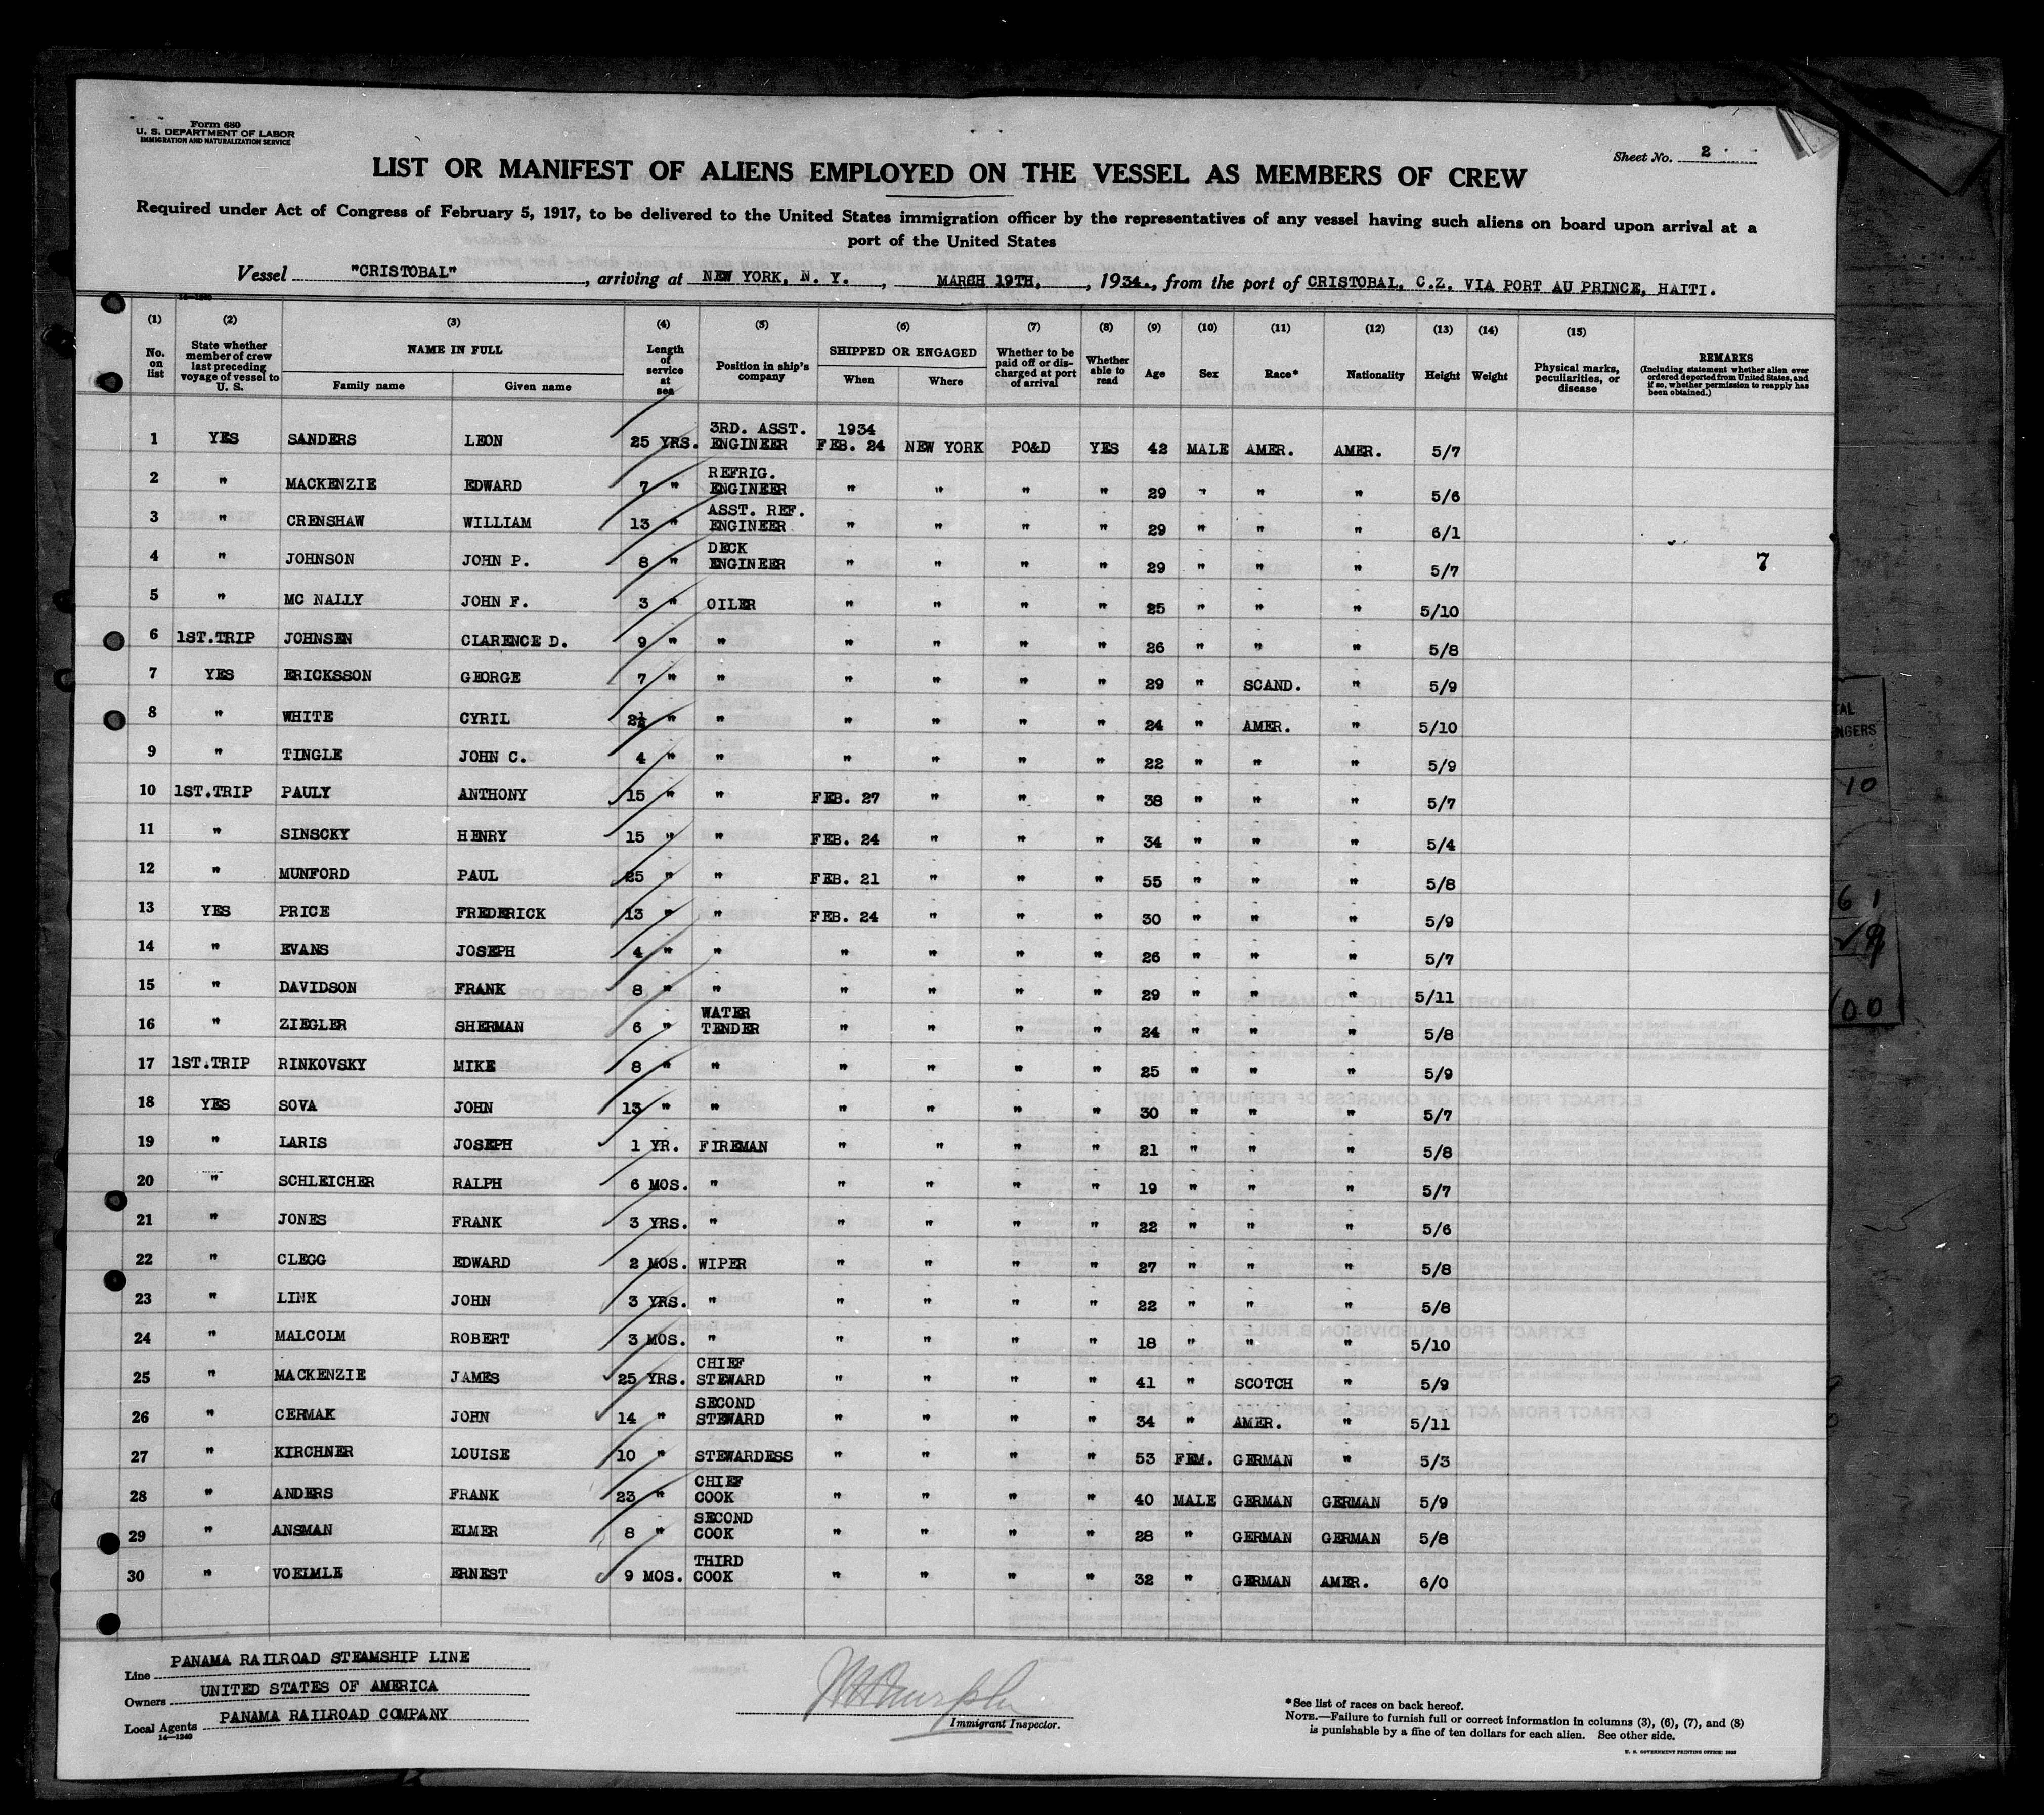 Form 680
U. S. DEPARTMENT OF LABOR
IMMIGRATION AND NATURALIZATION SERVICE
Sheet No. 2
LIST OR MANIFEST OF ALIENS EMPLOYED ON THE VESSEL AS MEMBERS OF CREW
Required under Act of Congress of February 5, 1917, to be delivered to the United States immigration officer by the representatives of any vessel having such aliens on board upon arrival at a
port of the United States
Vessel "CRISTOBAL", arriving at NEW YORK, N. Y., MARCH 19TH, 1934., from the port of CRISTOBAL, C.Z. VIA PORT AU PRINCE, HAITI.
14—1240
(1) (2) (3) (4) (5) (6) (7) (8) (9) (10) (11) (12) (13) (14) (15)
No. on list State whether member of crew last preceding voyage of vessel to U. S. NAME IN FULL Family name Given name Length of service at sea Position in ship's company SHIPPED OR ENGAGED When Where Whether to be paid off or discharged at port of arrival Whether able to read Age Sex Race* Nationality Height Weight Physical marks, peculiarities, or disease REMARKS (Including statement whether alien ever ordered deported from United States, and if so, whether permission to reapply has been obtained.)
1 YES SANDERS LEON 25 YRS. 3RD. ASST. ENGINEER 1934 FEB. 24 NEW YORK PO&D YES 42 MALE AMER. AMER. 5/7
2 " MACKENZIE EDWARD 7 " REFRIG. ENGINEER " " " " 29 " " " 5/6
3 " CRENSHAW WILLIAM 13 " ASST. REF. ENGINEER " " " " 29 " " " 6/1
4 " JOHNSON JOHN P. 8 " DECK ENGINEER " " " " 29 " " " 5/7 7
5 " MC NALLY JOHN F. 3 " OILER " " " " 25 " " " 5/10
6 1ST.TRIP JOHNSEN CLARENCE D. 9 " " " " " " 26 " " " 5/8
7 YES ERICKSSON GEORGE 7 " " " " " " 29 " SCAND. " 5/9
8 " WHITE CYRIL 2½ " " " " " " 24 " AMER. " 5/10
9 " TINGLE JOHN C. 4 " " " " " " 22 " " " 5/9
10 1ST.TRIP PAULY ANTHONY 15 " " FEB. 27 " " " 38 " " " 5/7
11 " SINSCKY HENRY 15 " " FEB. 24 " " " 34 " " " 5/4
12 " MUNFORD PAUL 25 " " FEB. 21 " " " 55 " " " 5/8
13 YES PRICE FREDERICK 13 " " FEB. 24 " " " 30 " " " 5/9
14 " EVANS JOSEPH 4 " " " " " " 26 " " " 5/7
15 " DAVIDSON FRANK 8 " " " " " " 29 " " " 5/11
16 " ZIEGLER SHERMAN 6 " WATER TENDER " " " " 24 " " " 5/8
17 1ST.TRIP RINKOVSKY MIKE 8 " " " " " " 25 " " " 5/9
18 YES SOVA JOHN 13 " " " " " " 30 " " " 5/7
19 " LARIS JOSEPH 1 YR. FIREMAN " " " " 21 " " " 5/8
20 " SCHLEICHER RALPH 6 MOS. " " " " " 19 " " " 5/7
21 " JONES FRANK 3 YRS. " " " " " 22 " " " 5/6
22 " CLEGG EDWARD 2 MOS. WIPER " " " " 27 " " " 5/8
23 " LINK JOHN 3 YRS. " " " " " 22 " " " 5/8
24 " MALCOLM ROBERT 3 MOS. " " " " " 18 " " " 5/10
25 " MACKENZIE JAMES 25 YRS. CHIEF STEWARD " " " " 41 " SCOTCH " 5/9
26 " CERMAK JOHN 14 " SECOND STEWARD " " " " 34 " AMER. " 5/11
27 " KIRCHNER LOUISE 10 " STEWARDESS " " " " 53 FEM. GERMAN " 5/3
28 " ANDERS FRANK 23 " CHIEF COOK " " " " 40 MALE GERMAN GERMAN 5/9
29 " ANSMAN ELMER 8 " SECOND COOK " " " " 28 " GERMAN GERMAN 5/8
30 " VOELMLE ERNEST 9 MOS. THIRD COOK " " " " 32 " GERMAN AMER. 6/0
Line PANAMA RAILROAD STEAMSHIP LINE
Owners UNITED STATES OF AMERICA
Local Agents PANAMA RAILROAD COMPANY
14—1240
Immigrant Inspector.
*See list of races on back hereof.
NOTE.—Failure to furnish full or correct information in columns (3), (6), (7), and (8)
is punishable by a fine of ten dollars for each alien. See other side.
U. S. GOVERNMENT PRINTING OFFICE:
NGERS
10
61
00